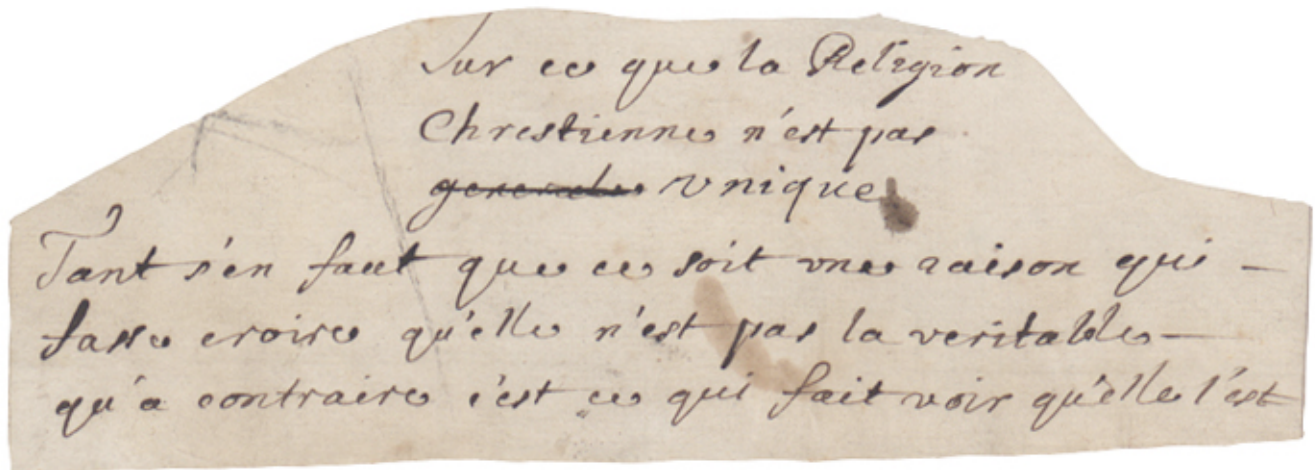 Sur ce que la Religion
Chrestienne n'est pas
generale vnique
Tant s'en faut que ce soit vne raison qui –
fasse croire qu'elle n'est pas la veritable –
qu'a contraire c'est ce qui fait voir qu'elle l'est